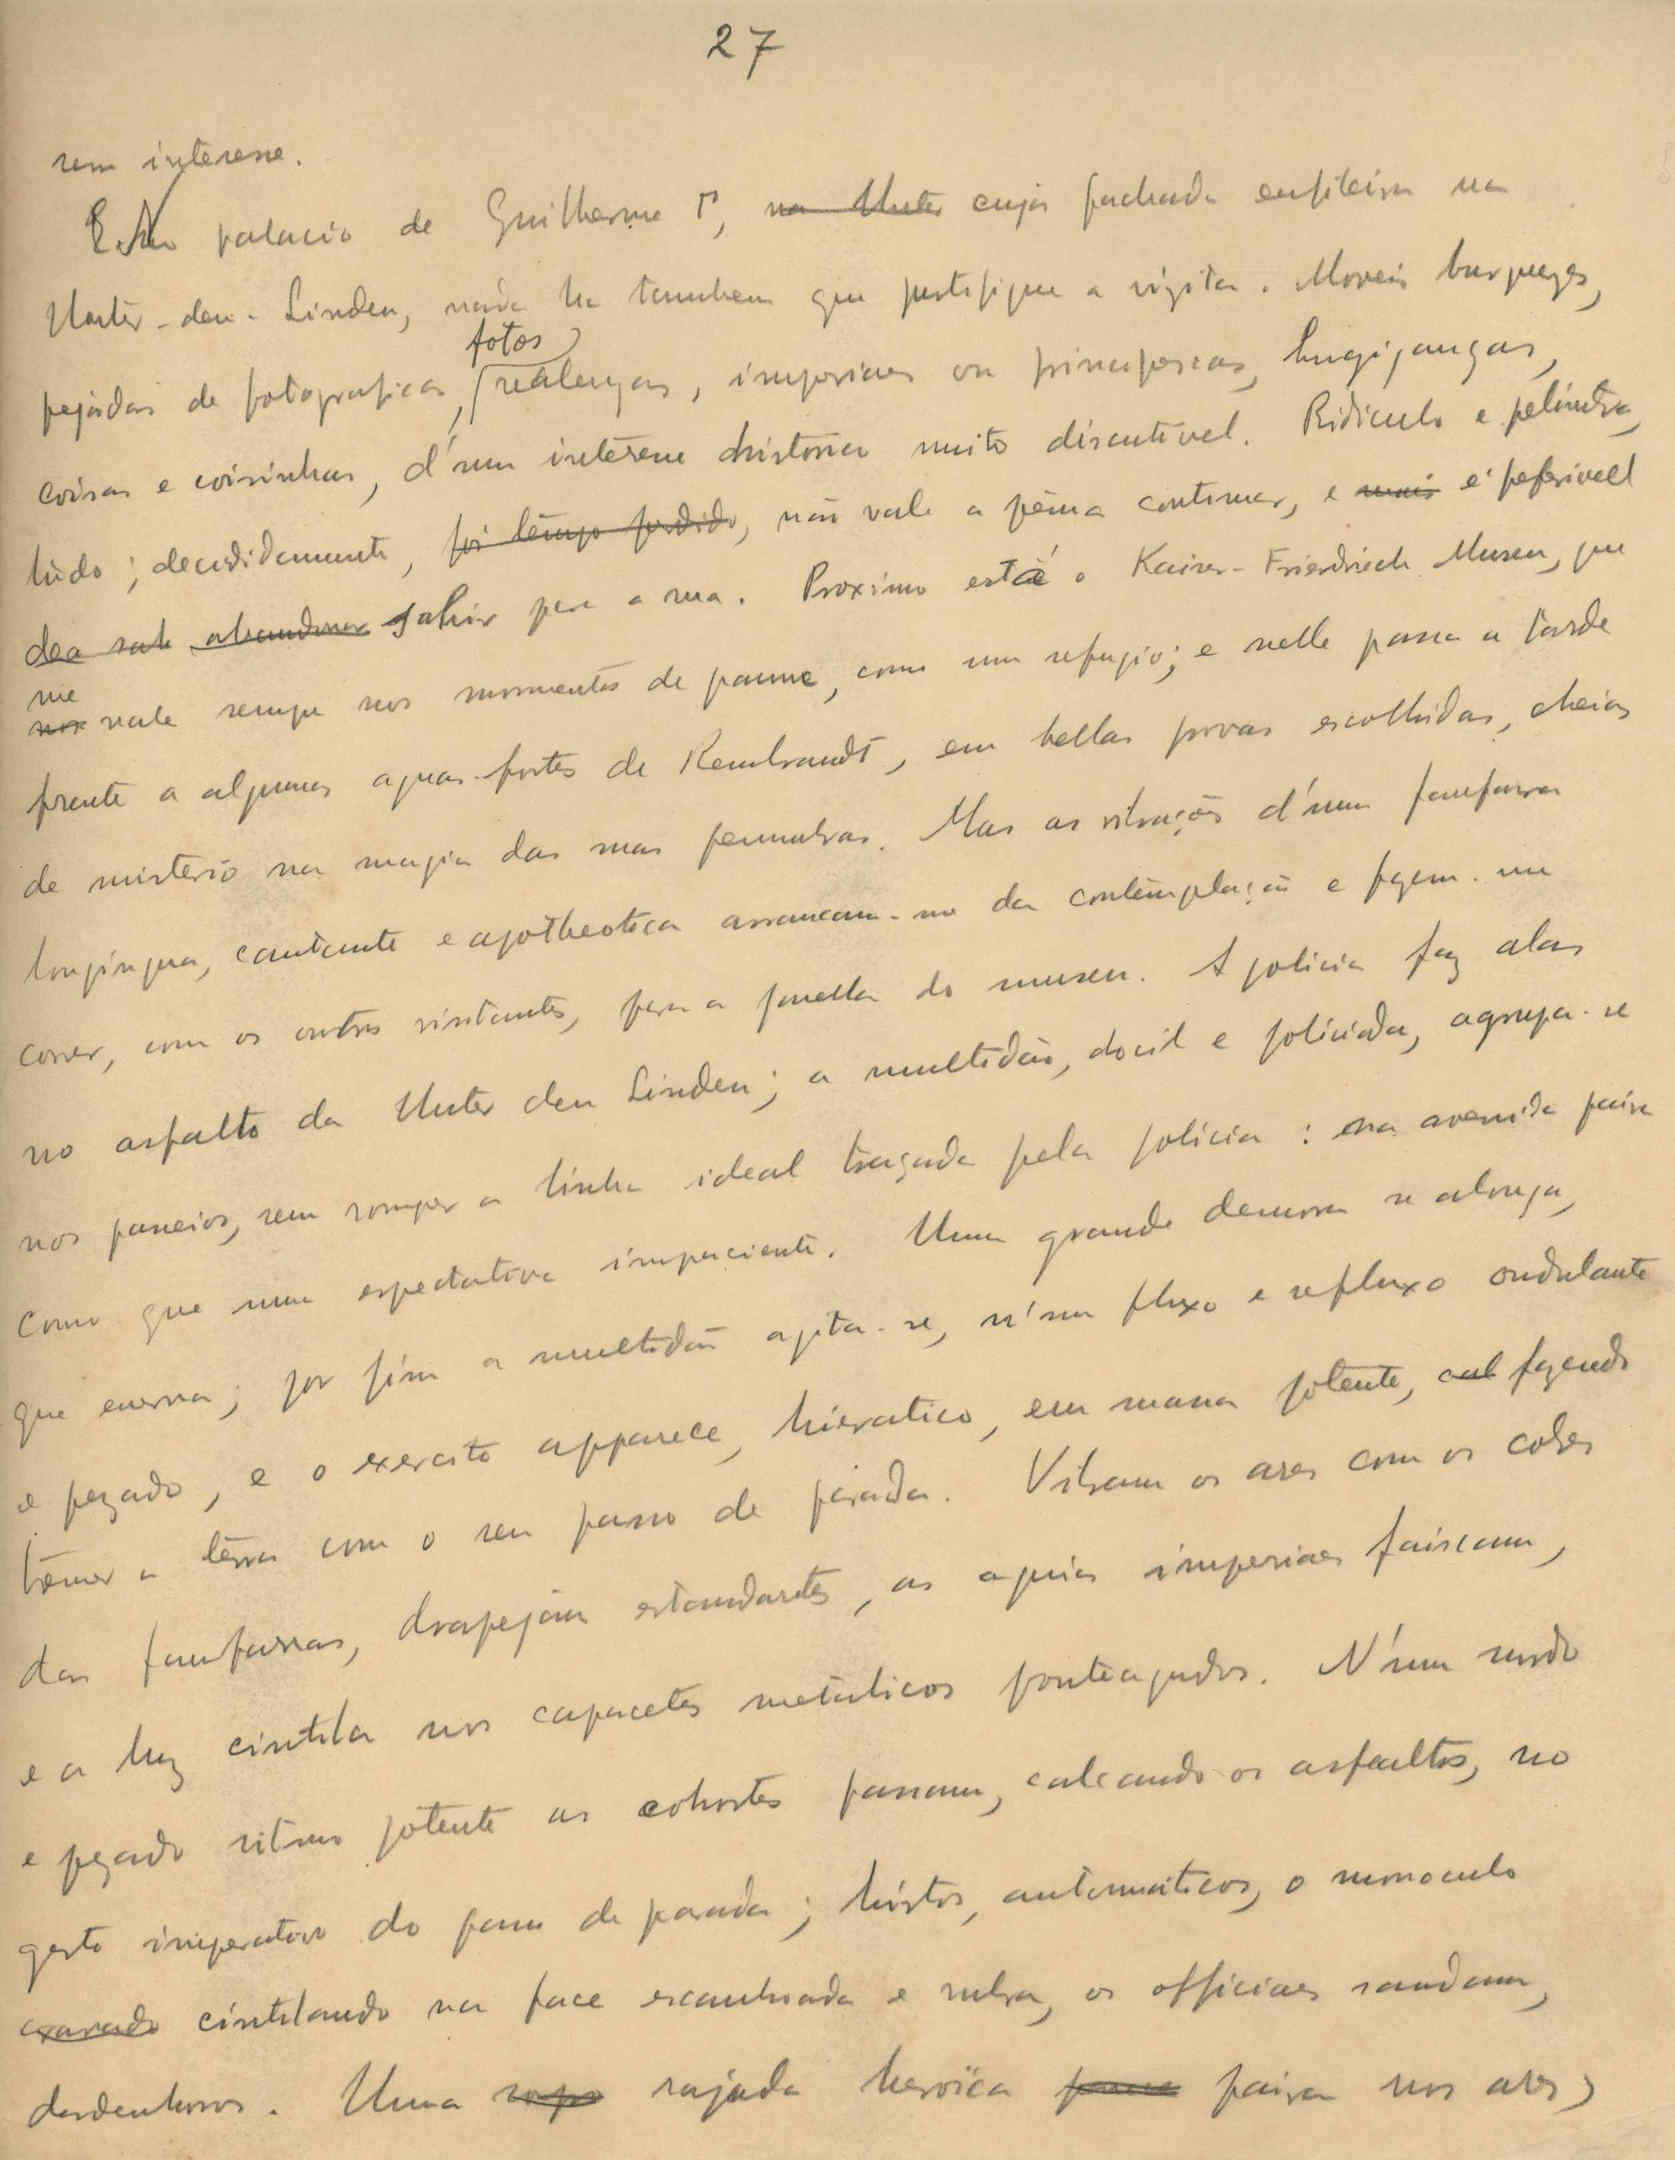 27
sem interesse.
palacio de Guilherme 1º, na Unter cuja fachada enfileira na
Unter-den-Linden, nada ha tambem que justifique a vizita. Moveis burguezes,
fotos
pejados de fotografias, realengas, imperiaes ou principescas, bugigangas,
coisas e coisinhas, d'um interesse historico muito discutivel. Ridiculo e pelintra,
tudo; decididamente, foi tempo perdido, não vale a pêna continuar, e mais é preferivel
abandonar sahir para a rua. Proximo está o Kaiser-Friedrich Museu, que
me
nos vale sempre nos momentos de pausa, como um refugio; e nelle passo a tarde
frente a algumas aguas-fortes de Rembrandt, em bellas provas escolhidas, cheias
de misterio na magia das suas penumbras. Mas as vibrações d'uma fanfarra
longinqua, cantante e apotheotica arrancam-me da contemplação e fazem-me
correr, com os outros visitantes, para a janella do museu. A policia faz alas
no asfalto da Unter den Linden; a multidão, docil e policiada, agrupa-se
nos passeios, sem romper a linha ideal traçada pela policia: na avenida paira
como que uma espectativa impaciente. Uma grande demora se alonga,
que enerva; por fim a multidão agita-se, n'um fluxo e refluxo ondulante
e pezado, e o exercito apparece, hieratico, em massa potente, cal fazendo
tremer a terra com o seu passo de parada. Vibram os ares com os cobres
das fanfarras, drapejam estandartes, as aguias imperiaes faiscam,
e a luz cintila nos capacetes metalicos ponteagudos. N'um surdo
e pezado ritmo potente as cohortes passam, calcando os asfaltos, no
gesto imperativo do passo de parada; hirtos, automaticos, o monoculo
cravado cintilando na face escanhoada e rubra, os officiaes saudam,
desdenhosos. Uma rajada heroïca passa paira nos ares,